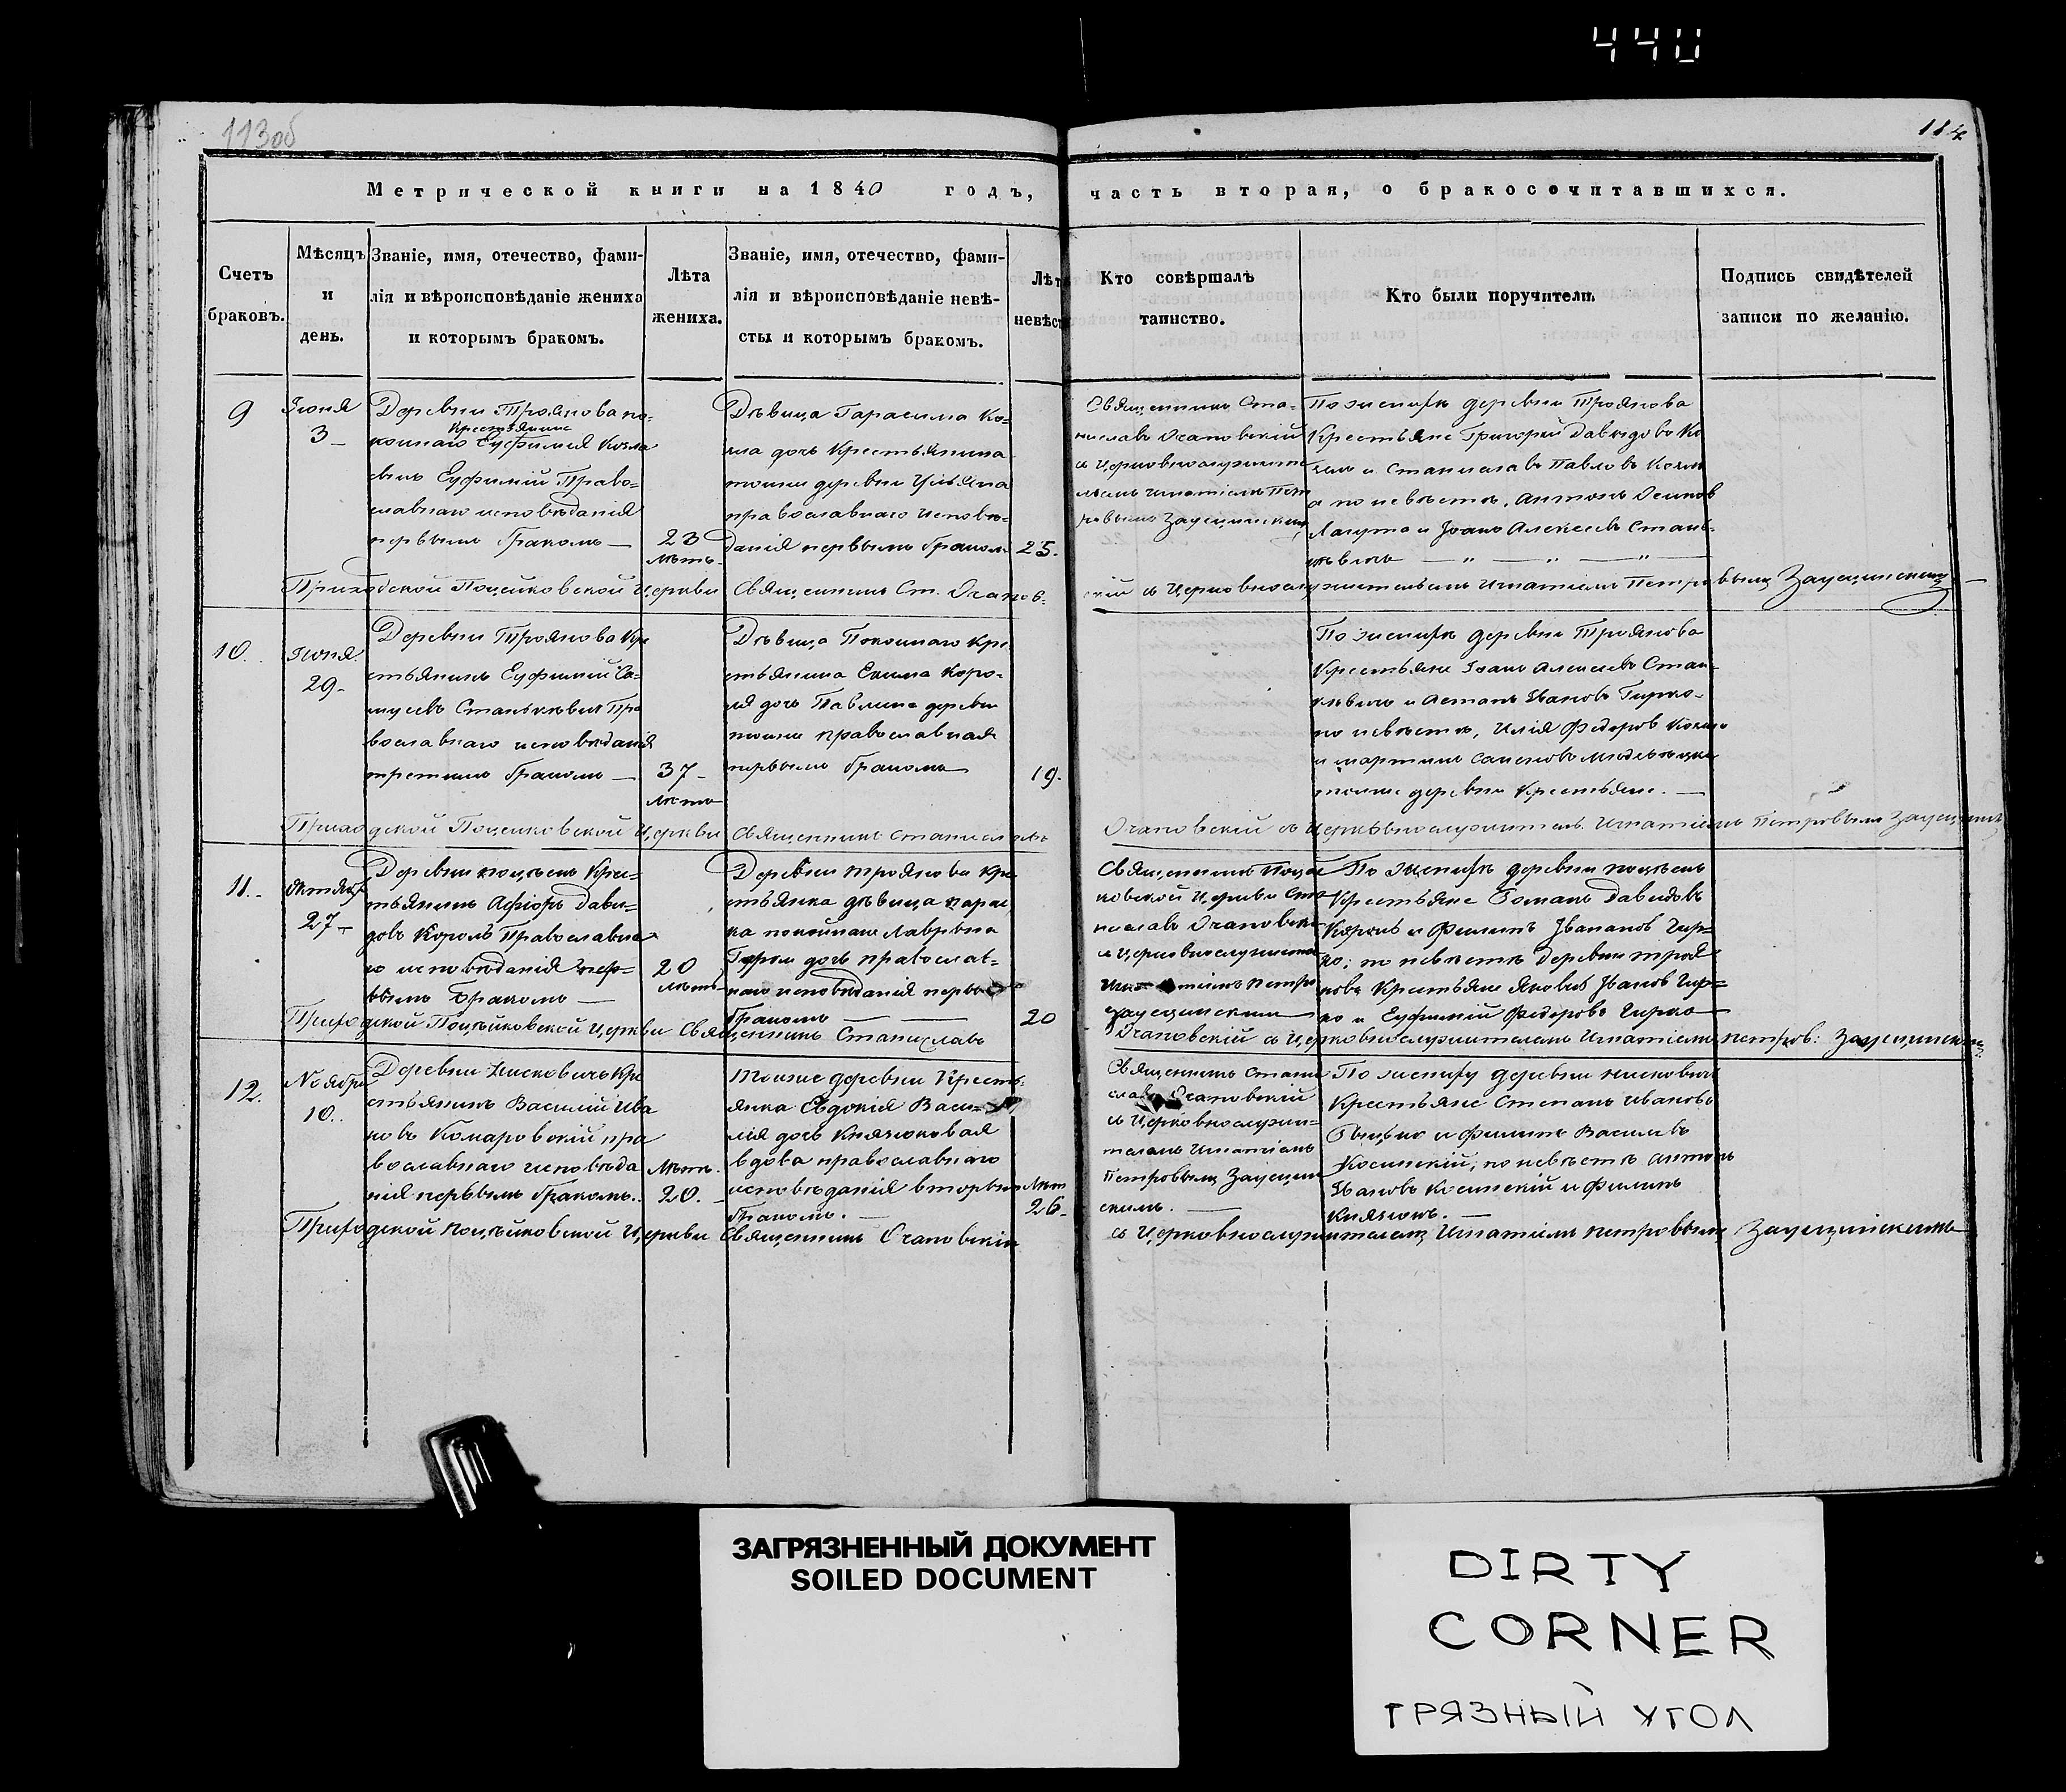 440
113об
114
Метрической книги на 1840 годъ, часть вторая, о бракосочитавшихся.
Счетъ браковъ.
Мѣсяцъ и день.
Званіе, имя, отечество, фами-
лія и вѣроисповѣданіе жениха
и которымъ бракомъ.
Лѣта
жениха.
Званіе, имя, отечество, фами-
лія и вѣроисповѣданіе невѣ-
сты и которымъ бракомъ.
Лѣт
невѣст
Кто совѣршалъ
таинство.
Кто были поручители.
Подпись свидѣтелей
записи по желанію.
9
Іюня
3
Деревни Троянова по-
Крестьянинъ
койнаго Еуфимія Козла
сынъ Еуфимій Право-
славнаго исповѣданія
первымъ бракомъ
23
лѣтъ.
Дѣвица Гарасима Ко-
дочь Крестьянина
тоиже деревни Ульяна
православнаго исповѣ-
данія первымъ браком
25.
Священникъ Ста-
ниславъ Очаповскій
съ Церковнослужите
лемъ Игнатіемъ Пет
ровымъ Заусцинским
По женихѣ деревни Троянова
Крестьяне Григорій Давыдовъ Ко
и Станиславъ Павловъ
а по невѣстѣ, Антонъ Осипов
Лагута и Іоанъ Алексеевъ Стань-
кѣвичъ
Приходской Поцейковской Церкви Священникъ Ст. Очапов-
скій съ Церковнослужителемъ Игнатіемъ Петровымъ Заусцинскимъ
10.
Іюня.
29.
Деревни Троянова Кре
стьянинъ Еуфимій Са-
муевъ Станькѣвич Пра
вославнаго исповѣданія
третимъ бракомъ
37
лѣта
Дѣвица Покоинаго Кре
стьянина Екима Коро-
ля дочь Павлина деревни
тоиже православная
первымъ бракомъ
19.
По женихѣ деревни Троянова
Крестьяне Іоанъ Алексеевъ Стан-
кѣвичъ и Астапъ Ивановъ Гирко-
по невѣстѣ, Илія Федоровъ
и Мартинъ
тоиже деревни Крестьяне.
Приходской Поцейковской Церкви Священникъ Станиславъ
Очаповскій съ Церковнослужителемъ Игнатіемъ Петровымъ Заусцинск
11.
Октября
27
Деревни Поцѣекъ Кре-
стьянинъ Дави-
довъ Король Православна
го исповѣданія пер-
вымъ бракомъ
20
лѣтъ
Деревни Троянова Кре
стьянка дѣвица Парас
ка покойнаго Лаврына
дочь православ-
наго исповѣданія первы
бракомъ
20
Священникъ Поцей
ковской Церкви Ста
ниславъ Очаповскі
съ Церковнослужите
Петро
Заусцинскимъ
По женихѣ деревни Поцѣекъ
Крестьяне Романъ Давидовъ
Король и Филипъ Ивановъ Гир-
ко; по невѣстѣ деревни Троя
нова Крестьяне Яковъ Ивановъ Гир-
ко и Еуфимій Федоровъ Гирко
Приходской Поцѣйковской Церкви Священникъ Станиславъ
Очаповскій съ Церковнослужителемъ Игнатіемъ Петров: Заусцинским
12.
Ноября
10.
Деревни Нисковичъ Кре
стьянинъ Василій Ива
новъ Комаровскій пра
вославнаго исповѣда
нія первымъ бракомъ.
Лѣтъ.
20.
Тоиже деревни Кресть-
янка Евдокія Васи-
лія дочь Князюковая
вдова православнаго
исповѣданія вторым
бракомъ.
Лѣт
26.
Священникъ Стани
славъ Очаповскій
съ Церковнослужи-
телемъ Игнатіемъ
Петровымъ Заусцин
скимъ.
По жениху деревни Нисковичъ
Крестьяне Степанъ Ивановъ
и Филипъ Васильевъ
Косинскій; по невѣстѣ Антонъ
Ивановъ Косинскій и Филипъ
Князюкъ.
Приходской Поцѣйковской Церкви Священникъ Очаповскій
съ Церковнослужителемъ Игнатіемъ Петровымъ Заусцинскимъ
ЗАГРЯЗНЕННЫЙ ДОКУМЕНТ
SOILED DOCUMENT
DIRTY
CORNER
ГРЯЗНЫЙ УГОЛ